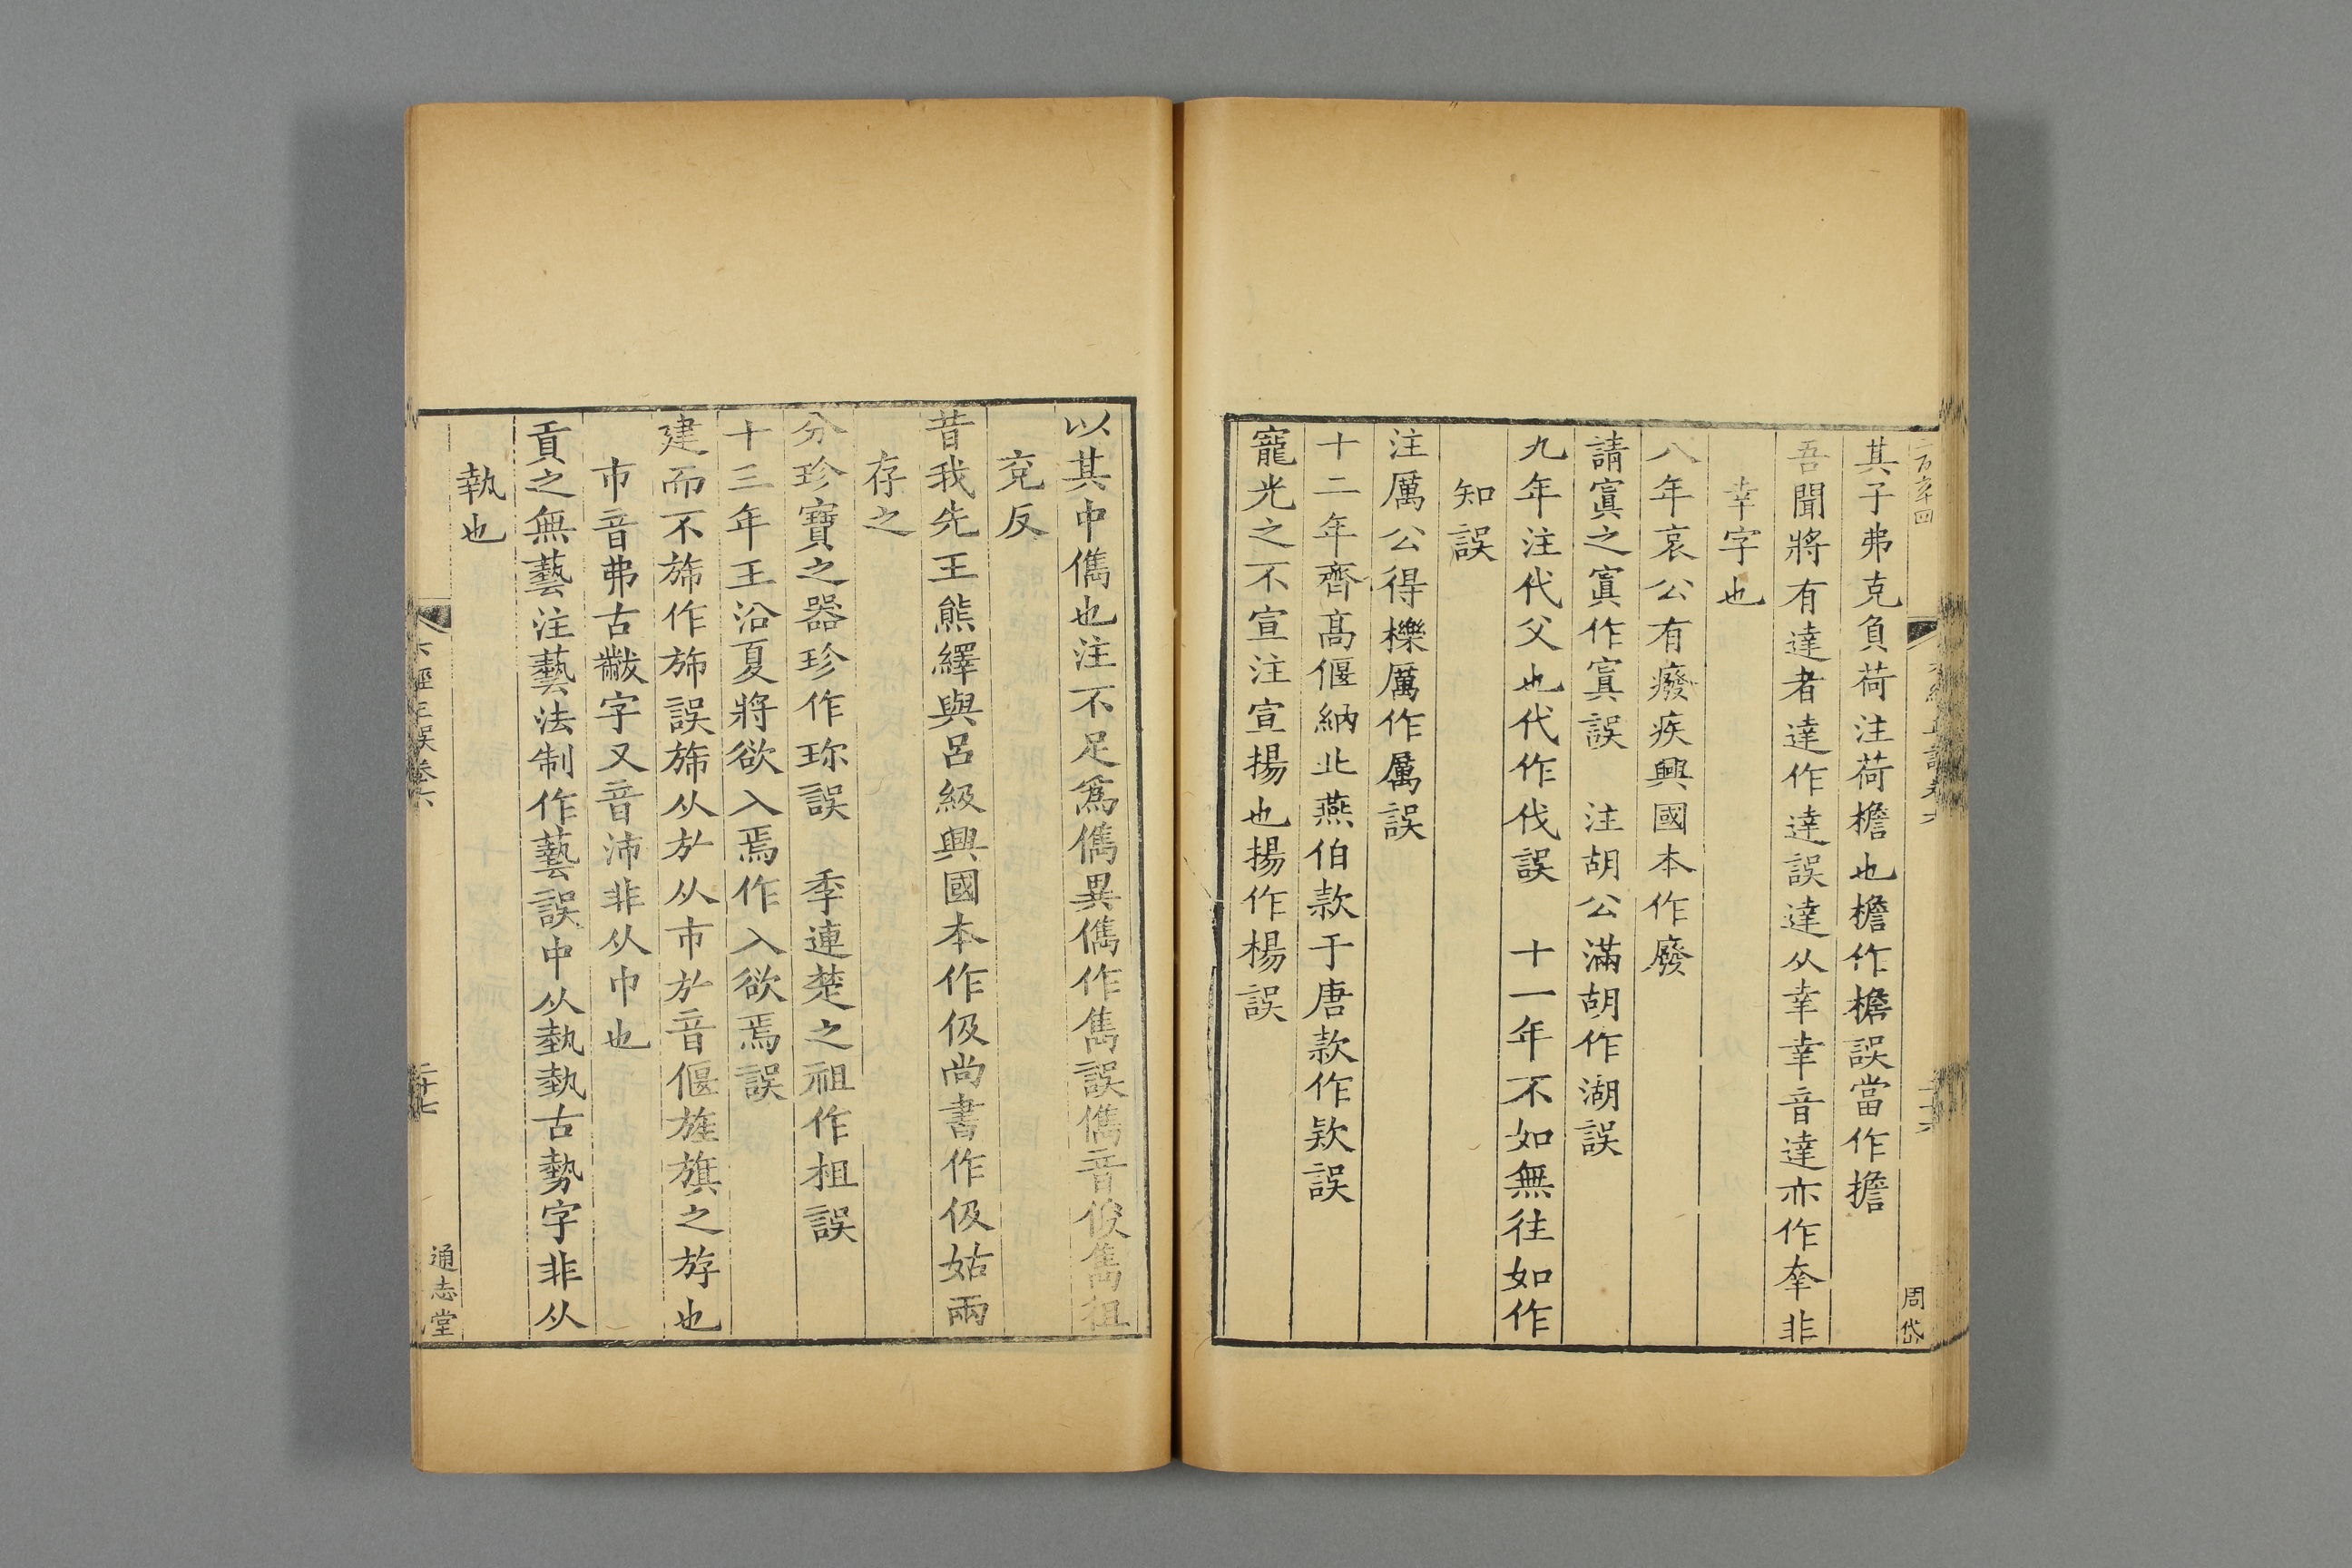 其子弗克負荷注荷檐也檐作檐誤當作擔
吾聞將有達者達作逹誤達从𦍒𦍒音達亦作羍非
幸字也
八年哀公有癈疾興國本作廢
請寘之寘作寘誤 注胡公滿胡作湖誤
九年注代父也代作伐誤 十一年不如無往如作
知誤
注厲公得櫟厲作厲誤
十二年齊髙偃納北燕伯款于唐款作欵誤
寵光之不宣注宣揚也揚作楊誤
周岱
以其中儁也注不足爲儁異儁作雋誤儁音俊雋徂
兗反
昔我先王熊繹與呂級興國本作伋尚書作伋姑兩
存之
分珍寶之器珍作珎誤 季連楚之祖作柤誤
十三年王沿夏將欲入焉作入欲焉誤
建而不斾作斾誤斾从㫃从巿㫃音偃旌旗之斿也
巿音弗古黻字又音沛非从巾也
貢之無藝注藝法制作藝誤中从埶埶古勢字非从
執也
六經正誤卷六
二十七
通志堂